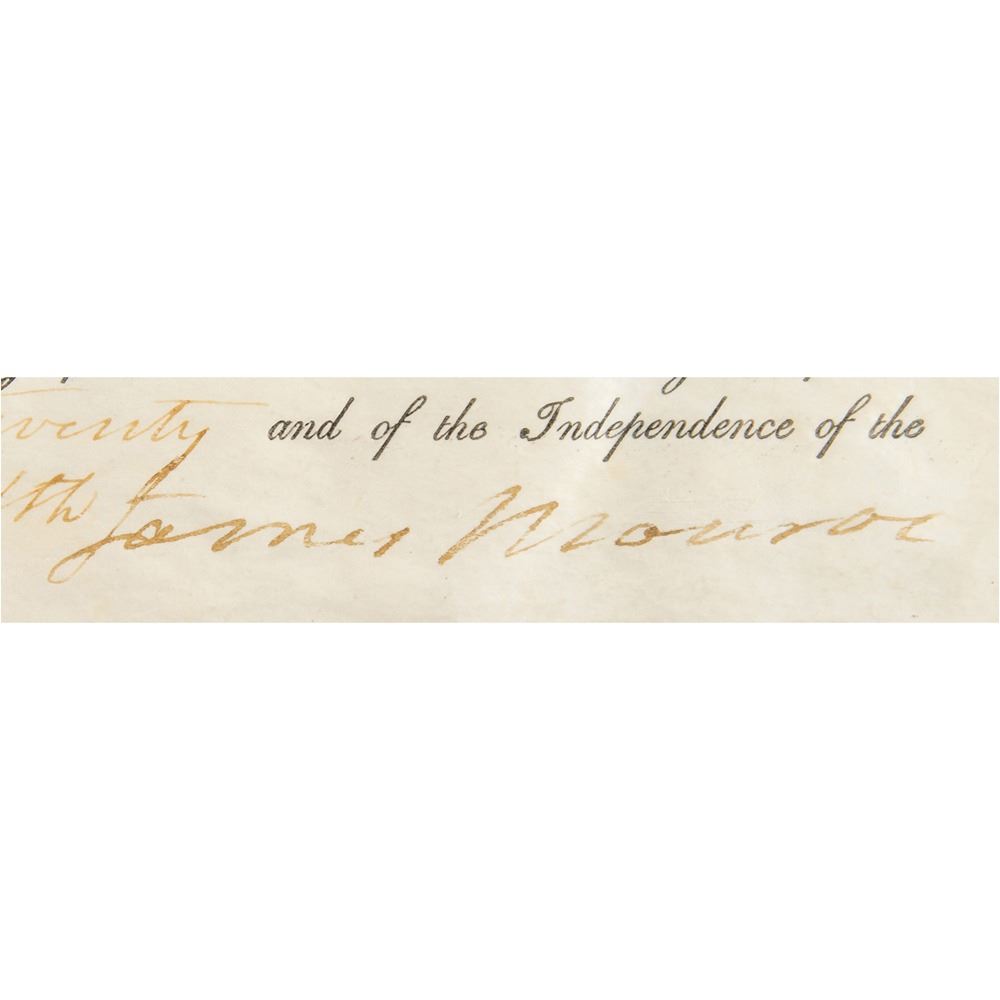 twenty and of the Independence of the
th James Monroe